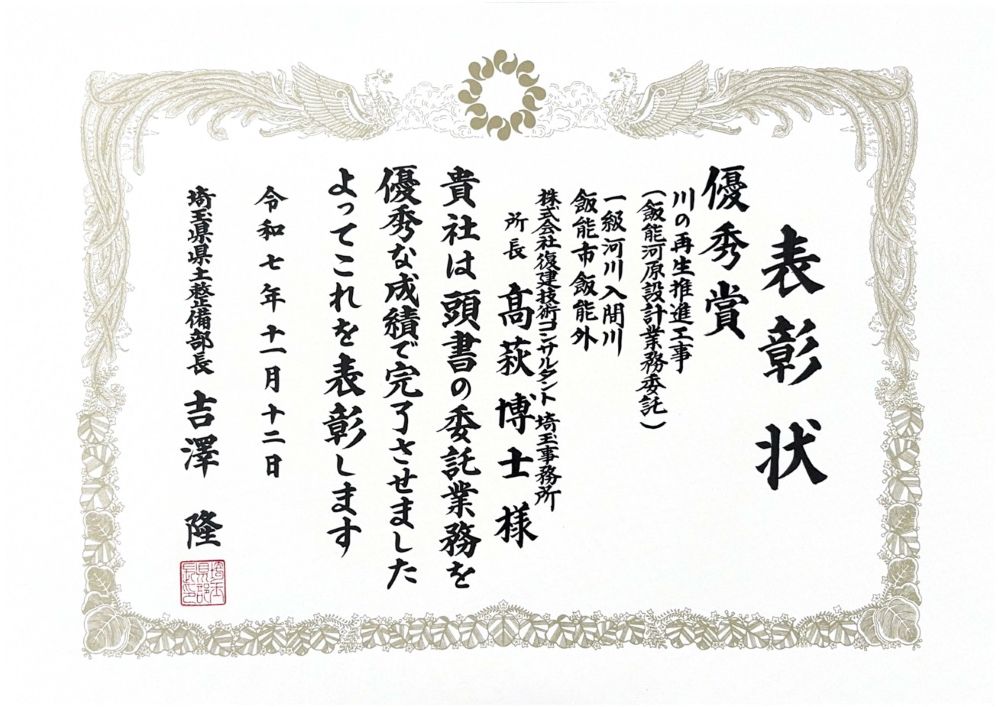 表彰状
優秀賞
川の再生推進工事
(飯能河原設計業務委託)
一級河川入間川
飯能市飯能外
株式会社復建技術コンサルタント 埼玉事務所
所長 髙萩博士様
貴社は頭書の委託業務を
優秀な成績で完了させました
よってこれを表彰します
令和七年十一月十二日
埼玉県県土整備部長 吉澤 隆